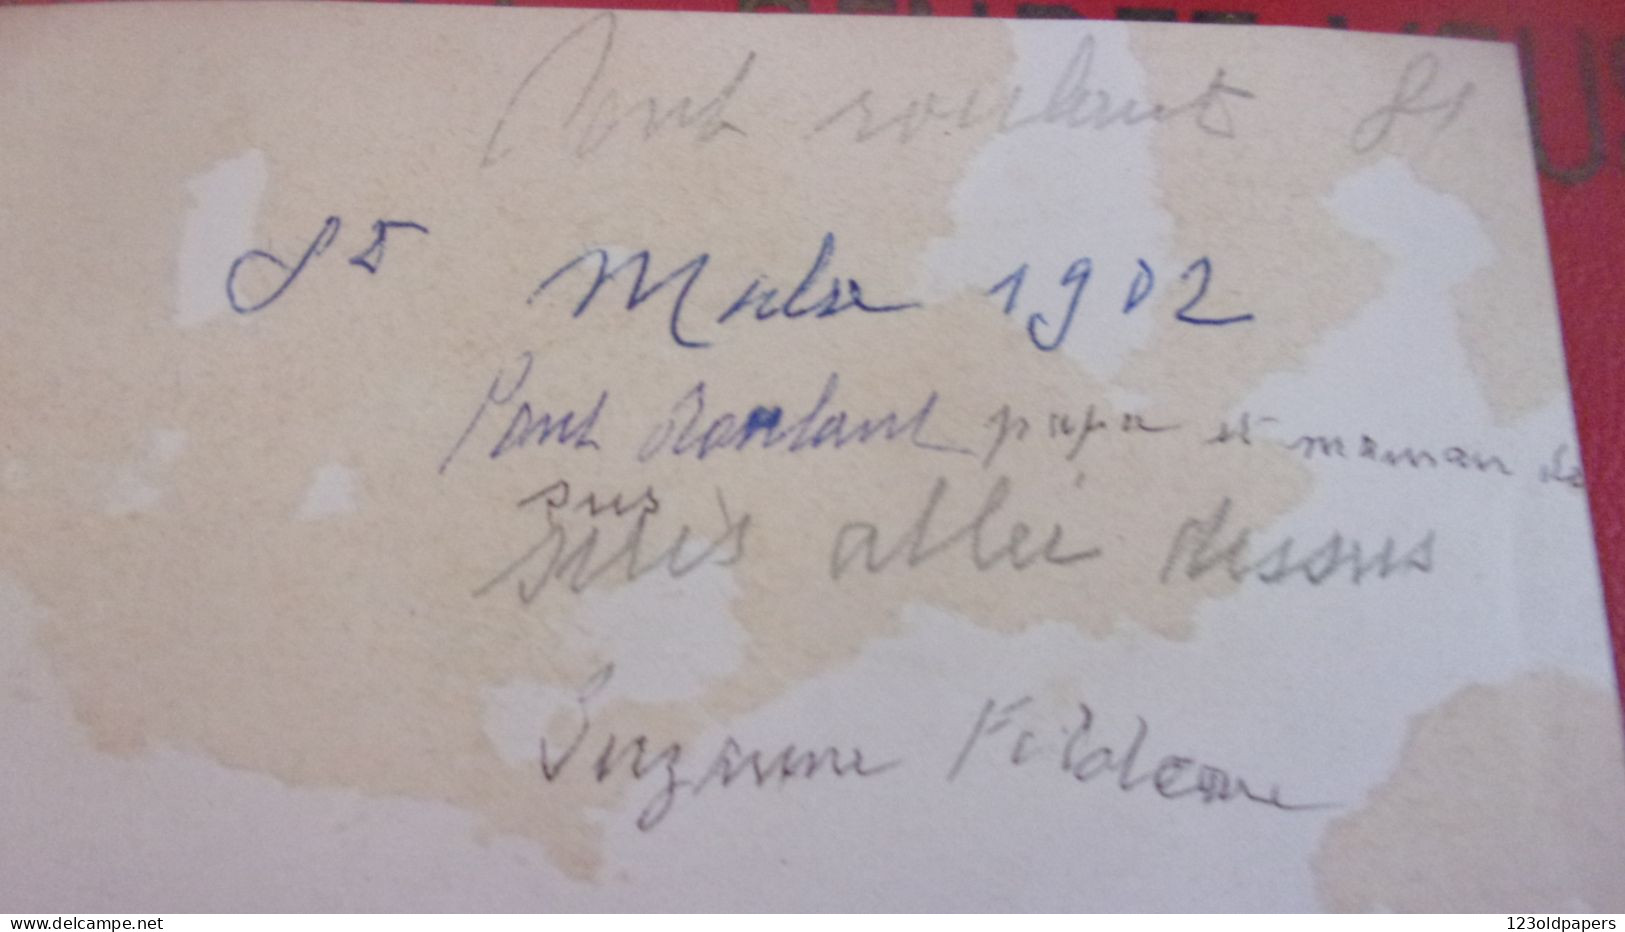 RENDEZ VOUS
Pont roulant St
St Malo 1902
Pont Roulant papa et maman
sus
suis allée dessus
Suzanne
© Delcampe.net
123oldpapers